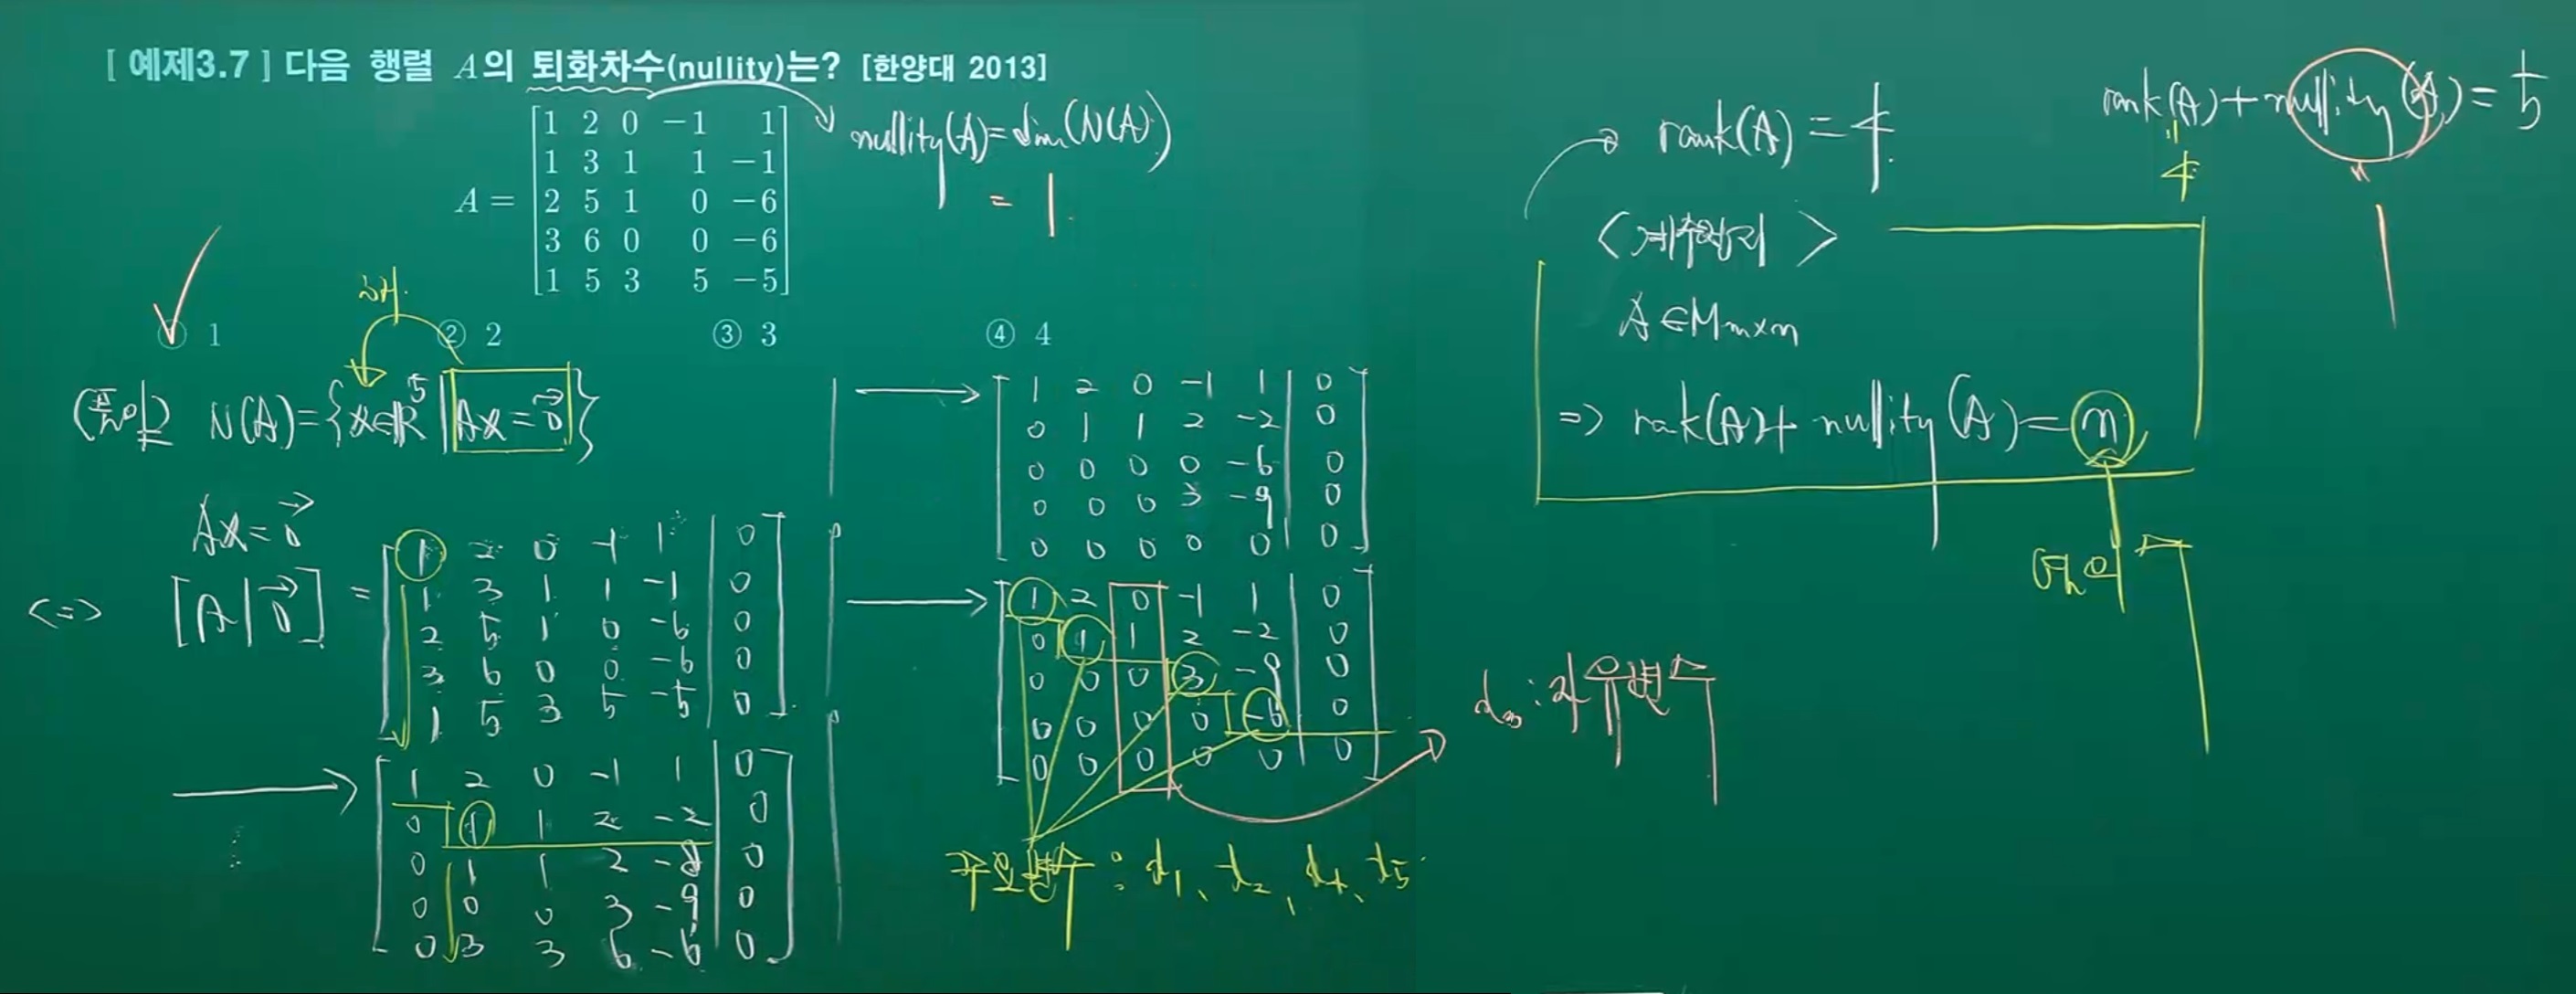 [ 예제3.7 ] 다음 행렬 A의 퇴화차수(nullity)는? [한양대 2013]
A = [1 2 0 −1 1]
[1 3 1 1 −1]
[2 5 1 0 −6]
[3 6 0 0 −6]
[1 5 3 5 −5]
① 1 ② 2 ③ 3 ④ 4
nullity(A)=dim(N(A))
= 1
해
(풀이) N(A)={x∈R⁵ | Ax=0⃗}
Ax=0⃗
<=> [A|0⃗] = [1 2 0 -1 1 | 0]
[1 3 1 1 -1 | 0]
[2 5 1 0 -6 | 0]
[3 6 0 0 -6 | 0]
[1 5 3 5 -5 | 0]
→ [1 2 0 -1 1 | 0]
[0 1 1 2 -2 | 0]
[0 1 1 2 -8 | 0]
[0 0 0 3 -9 | 0]
[0 3 3 6 -6 | 0]
→ [1 2 0 -1 1 | 0]
[0 1 1 2 -2 | 0]
[0 0 0 0 -6 | 0]
[0 0 0 3 -9 | 0]
[0 0 0 0 0 | 0]
→ [1 2 0 -1 1 | 0]
[0 1 1 2 -2 | 0]
[0 0 0 3 -9 | 0]
[0 0 0 0 -6 | 0]
[0 0 0 0 0 | 0]
주요변수 : d₁, d₂, d₄, d₅
d₃ : 자유변수
rank(A) = 4
<계수정리>
A ∈ Mm×n
=> rak(A)+ nullity(A) = n
rank(A)+nullity(A) = 5
4
1